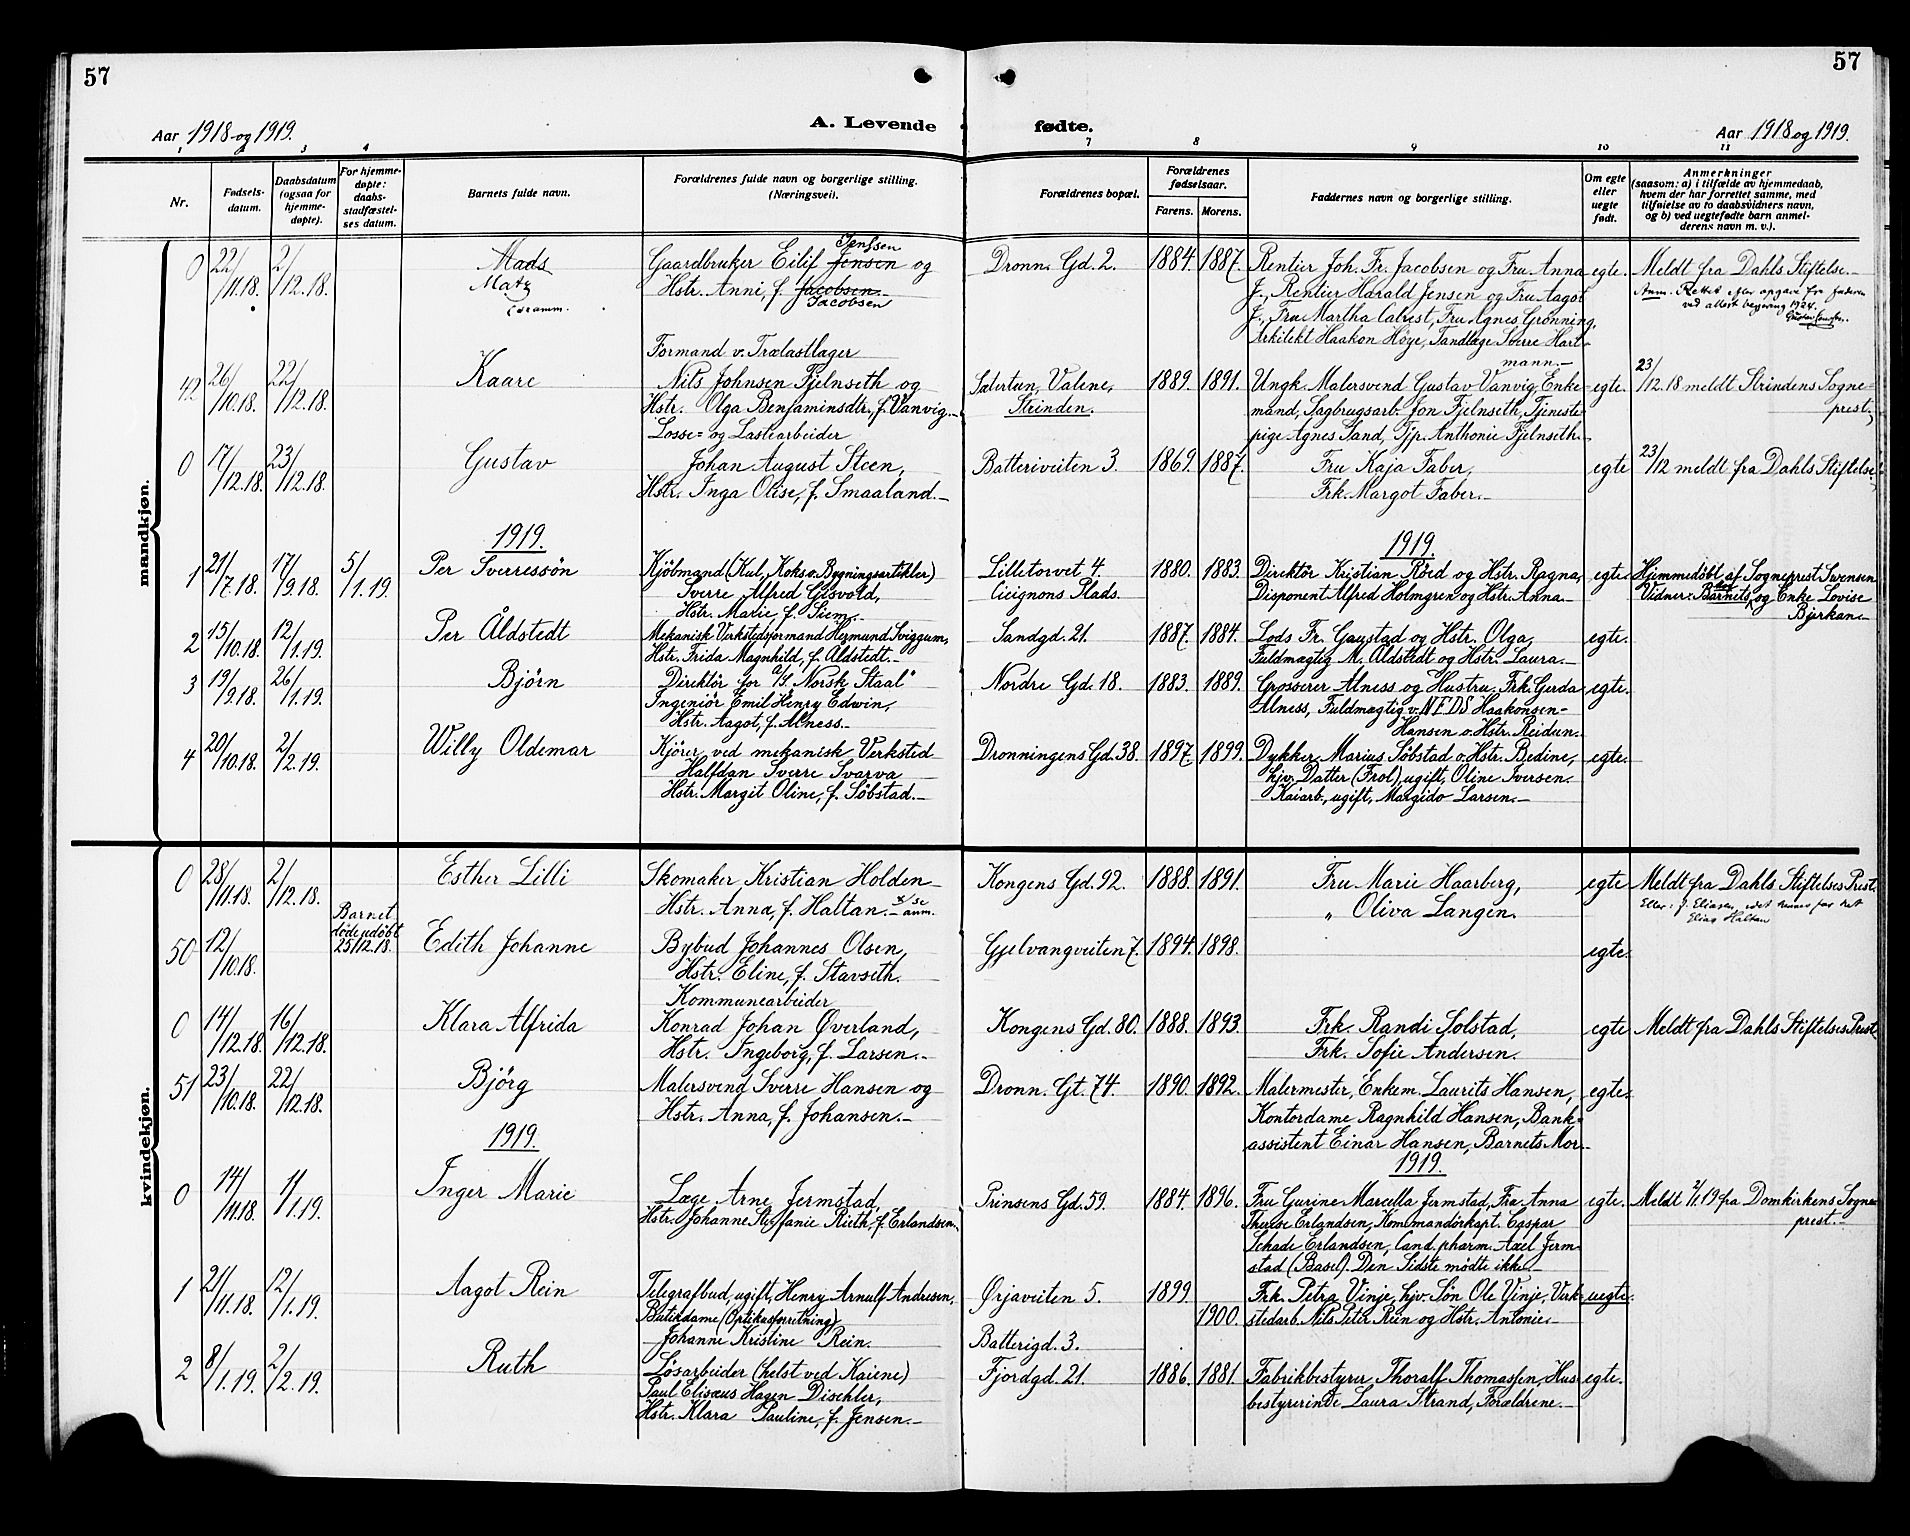 57
57
Aar 1918 og 1919.
A. Levende fødte.
Aar 1918 og 1919.
1 3 4 7 8 9 10 11
Nr.
Fødsels-
datum.
Daabsdatum
(ogsaa for
hjemme-
døpte).
For hjemme-
døpte:
daabs-
stadfæstel-
ses datum.
Barnets fulde navn.
Forældrenes fulde navn og borgerlige stilling.
(Næringsvei).
Forældrenes bopæl.
Forældrenes
fødselsaar.
Farens. Morens.
Faddernes navn og borgerlige stilling.
Om egte
eller
uegte
født.
Anmerkninger
(saasom: a) i tilfælde av hjemmedaab,
hvem der har forrettet samme, med
tilføielse av to daabsvidners navn,
og b) ved uegtefødte barn anmel-
derens navn m. v.).
mandkjøn.
0 22/11.18. 2/12.18. Mads
Matz
Gaardbruker Eilif Jensen og
Jenssen
Hstr. Anni, f. Jacobsen.
Jacobsen
Dronn. Gd. 2. 1884. 1887.
Rentier Joh. Fr. Jacobsen og Fru Anna
J., Rentier Harald Jensen og Fru Aagot
J., Fru Martha Calrest, Fru Agnes Grønning,
Arkitekt Haakon Höye, Tandlæge Sverre Hart-
mann.-
egte. Meldt fra Dahls Stiftelse.-
Anm. Rettet efter opgave fra faderen
42 26/10.18. 22/12.18. Kaare
Formand v. Trælastlager
Nils Johnsen Fjelnseth og
Hstr. Olga Benjaminsdtr. f. Vanvig.-
Sætertun, Valene,
Strinden.
1889. 1891.
Ungk. Malersvend Gustav Vanvig, Enke-
mand, Sagbrugsarb. Jon Fjelnseth, Tjeneste-
pige Agnes Sand, Tjp. Anthonie Fjelnseth.-
egte. 23/12.18 meldt Strindens Sogne-
prest.
0 17/12.18. 23/12.18. Gustav
Losse- og Lastearbeider
Johan August Steen,
Hstr. Inga Olise, f. Smaaland.-
Batteriveiten 3. 1869. 1887.
Fru Kaja Faber,
Frk. Margot Faber.-
egte 23/12 meldt fra Dahls Stiftelse.
1919.
1919.
1 21/7.18. 17/9.18. 5/1.19. Per Sverressön
Kjöbmand (Kul, Koks o. Bygningsartikler)
Sverre Alfred Gisvold,
Hstr. Marie f. Siem.-
Lilletorvet 4.
Cicignons Plads.
1880. 1883.
Direktör Kristian Röed og Hstr. Ragna,
Disponent Alfred Holmgren og Hstr. Anna-
egte. Hjemmedöbt af Sogneprest Svensen
Vidner: Barnets og Enke Lovise
Bjerkan.-
2 15/10.18. 12/1.19. Per Åldstedt
Mekanisk Verkstedsformand Hermund Sviggum,
Hstr. Frida Magnhild, f. Aldstedt.-
Sandgd. 21. 1887. 1884.
Lods Fr. Gaustad og Hstr. Olga,
Fuldmægtig M. Aldstedt og Hstr. Laura.-
egte.
3 19/9.18. 26/1.19. Björn
Direktör for A/S. "Norsk Staal"
Ingeniör Emil Henry Edwin,
Hstr. Aagot, f. Alness.-
Nordre Gd. 18. 1883. 1889.
Grosserer Alness og Hustru. Frk. Gerda
Alness, Fuldmægtig v. NFDS Haakonsen-
Hansen o. Hstr. Reidun.-
egte.
4 20/10.18. 2/2.19. Willy Oldemar
Kjörer ved mekanisk Verksted
Halfdan Sverre Svarva
Hstr. Margit Oline, f. Söbstad.-
Dronningens Gd. 38. 1897. 1899.
Dykker Marius Söbstad o. Hstr. Bedine,
hjv. Datter (Frol), ugift, Oline Iversen.
Kaiarb., ugift, Margido Larsen.-
egte.
kvindekjøn.
0 28/11.18. 2/12.18. Esther Lilli
Skomaker Kristian Holden-
Hstr. Anna, f. Haltan.- x/ se
anm.
Kongens Gd. 92. 1888. 1891.
Fru Marie Haarberg,
" Oliva Langen.
egte Meldt fra Dahls Stiftelses Prest.
Eller: f. Eliasen, idet hennes far het
Elias Haltan
50 12/10.18. Barnet
döde udöbt
25/12.18.
Edith Johanne
Bybud Johannes Olsen,
Hstr. Eline, f. Stavseth.
Gjelvangveiten 7. 1894. 1898.
egte.
0 14/12.18. 16/12.18. Klara Alfrida
Kommunearbeider
Konrad Johan Øverland,
Hstr. Ingeborg, f. Larsen.-
Kongens Gd. 80. 1888. 1893.
Frk. Randi Solstad,
Frk. Sofie Andersen.
egte Meldt fra Dahls Stiftelses Prest
51 23/10.18. 22/12.18. Björg
Malersvend Sverre Hansen og
Hstr. Anna, f. Johansen.-
Dronn. Gt. 74. 1890. 1892.
Malermester, Enkem. Laurits Hansen,
Kontordame Ragnhild Hansen, Bank-
assistent Einar Hansen, Barnets Mor.-
egte.
1919.
1919.
0 14/11.18. 1/1.19. Inger Marie
Læge Arne Jermstad,
Hstr. Johanne Steffanie Rieth, f. Erlandsen.
Prinsens Gd. 59. 1884. 1896.
Fru Gurine Marcella Jermstad, Fru Anna
Therese Erlandsen, Kommandörkapt. Caspar
Schade Erlandsen, Cand. pharm. Axel Jerm-
stad (Basel). Den Sidste mödte ikke.-
egte. Meldt 2/1 19 fra Domkirkens Sogne-
prest.-
1 21/11.18. 12/1.19. Aagot Rein
Telegrafbud, ugift, Henry Arnulf Andresen,
Butikdame (Optikusforretning)
Johanne Kristine Rein.
Ørjaveiten 5. 1899.
1900.
Batterigd. 3.
Frk. Petra Vinje, hjv. Sön Ole Vinje, Verk-
stedarb. Nils Peter Rein og Hstr. Antonie.-
uegte.
2 8/1.19. 2/2.19. Ruth
Løsarbeider (helst ved Kaiene)
Paul Elisæus Hagen Dischler,
Hstr. Klara Pauline, f. Jensen.-
Fjordgd. 21. 1886. 1881.
Fabrikbestyrer Thoralf Thomassen, Hus-
bestyrerinde Laura Strand, Forældrene.-
egte.